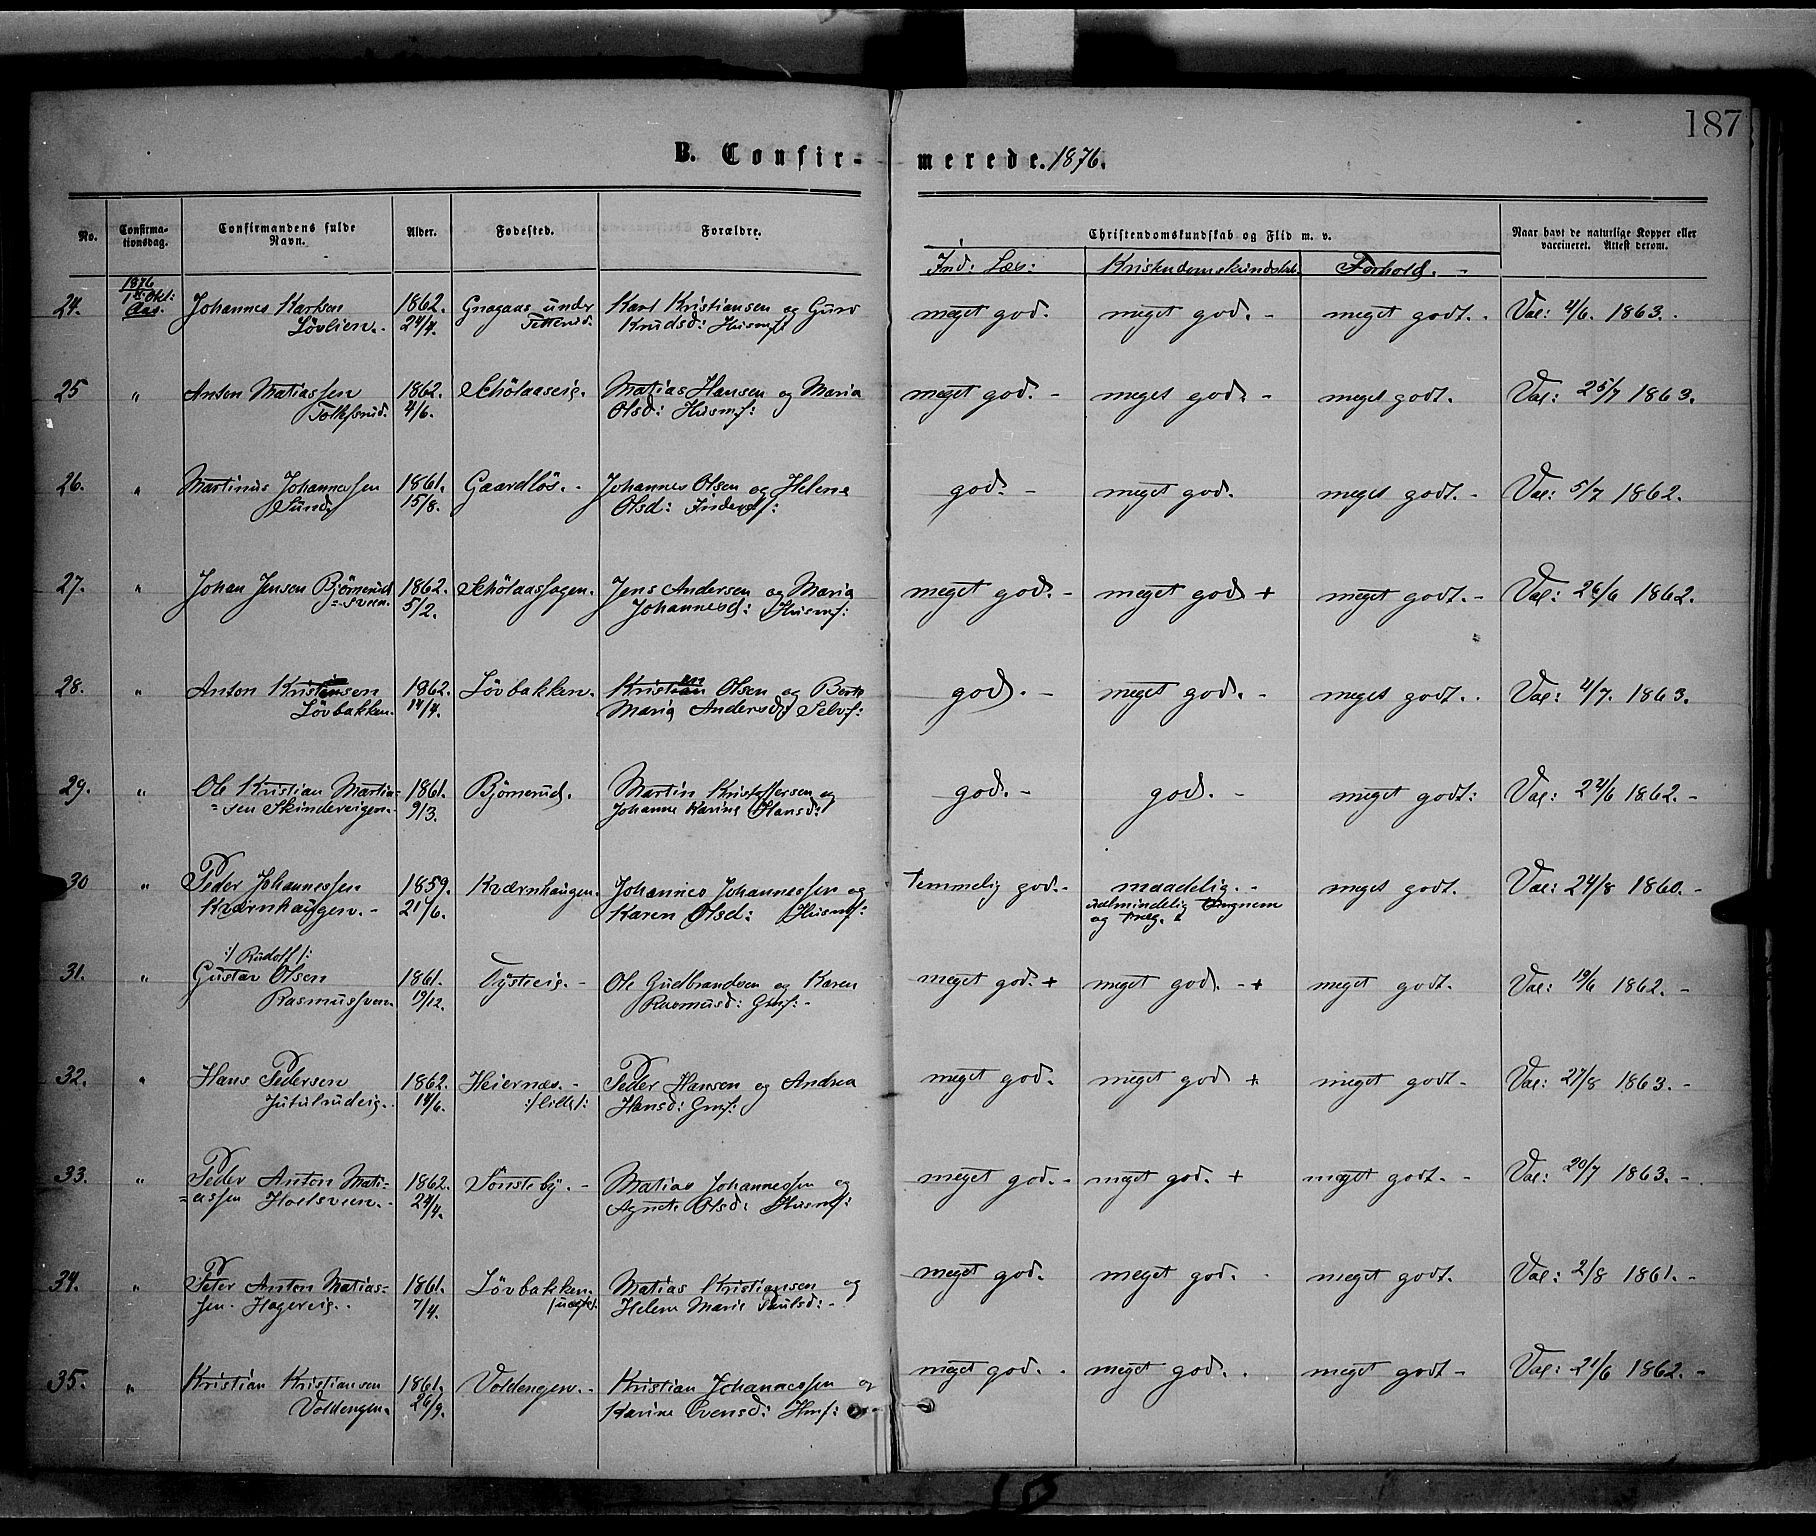 187
B. Confirmerede. 1876.
No.
Confirmationsdag.
Confirmandens fulde Navn.
Alder.
Fødested.
Forældre.
Christendomskundskab og Flid m. v.
Naar havt de naturlige Kopper eller vaccineret. Attest derom.
Ind: Læs:
Kristendomskundskab.
Forhold.
24. 1876 1ste Okt: Aas. Johannes Karlsen 1862. Gnagaas under Karl Kristiansen og Guro meget god. meget god. - meget godt. - Vac: 4/6. 1863. -
Lövlien. - 24/4. Tetterud. Knudsd: Husmf:
25 " Anton Matiassen 1862. Schölaaseie. Matias Hansen og Maria meget god. - meget god. - meget godt. Vac: 25/7 1863.
Tolhsrud. 4/6. Olsd: Husmf:
26. " Martinus Johannessen 1861. Gaardlös. - Johannes Olsen og Helene god. - meget god. meget godt. - Vac: 5/7 1862.
Sund. 15/8. Olsd: Inderstf:
27. " Johan Jensen Björnerud 1862. Schölaashagen. Jens Andersen og Maria meget god. - meget god + meget godt. - Vac: 26/6 1862.
= sveen. 5/2. Johannesd: Husmf:
28. " Anton Kristensen 1862. Lövbakken. Kristen Olsen og Berte god. - meget god. - meget godt. Vac: 4/7. 1863.
Lövbakken. 14/4. Maria Andersd: Selvf:
29. " Ole Kristian Martin= 1861. Björnerud. Martin Kristoffersen og god. - god. - meget godt: Vac: 24/6 1862. -
= sen Skindereigen. 9/3. Johanne Karine Hansd:
30 " Peder Johannessen 1859. Kværnhaugen. Johannes Johannessen og temmelig god. - maadelig. - meget godt. Vac: 24/8 1860. -
Kværnhaugen. - 21/6. Karen Olsd: Husmf: ualmindelig
og træg.
:/ Rudolf /:
31. " Gustav Olsen 1861. Tysteig. - Ole Gudbrandsen og Karen meget god. + meget god. - + meget godt. Vac: 19/6 1862. -
Rasmussveen. 19/12. Rasmusd: Gmf: -
32. " Hans Pedersen 1862. Heiernæs. - Peder Hansen og Andrea meget god. meget god + meget godt - Vac: 27/8 1863. -
Jutulrudeie. 14/6. :/ lille /: Hansd: Gmf:
33. " Peder Anton Mati= 1862. Sönsteby. - Matias Johannessen og meget god. - meget god. + meget godt. - Vac: 20/7 1863. -
= assen Holtsveen. - 24/4. Agnete Olsd: Husmf:
34. " Peter Anton Matias= 1861. Lövbakken. Matias Kristiansen og meget god. meget god. - meget godt. Vac: 2/8 1861. -
sen. Hagereie. 7/4. Helene Marie Paulsd: -
35. " Kristian Kristiansen 1861. Voldengen. - Kristian Johannessen og meget god. - meget god. . meget godt - Vac: 21/6 1862. -
Voldengen. 26/9. Karine Evensd: Hmf: